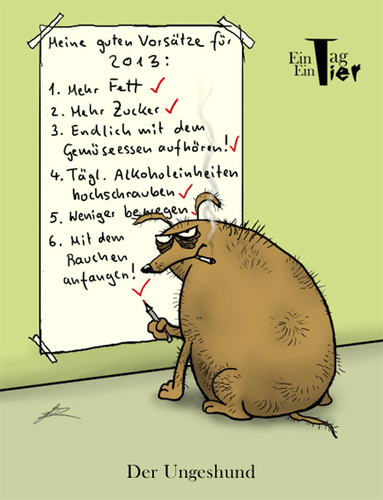 Meine guten Vorsätze für
2013:
1. Mehr Fett
2. Mehr Zucker
3. Endlich mit dem
Gemüseessen aufhören!
4. Tägl. Alkoholeinheiten
hochschrauben
5. Weniger bewegen
6. Mit dem
Rauchen
anfangen!
Ein Tag
Ein Tier
Der Ungeshund